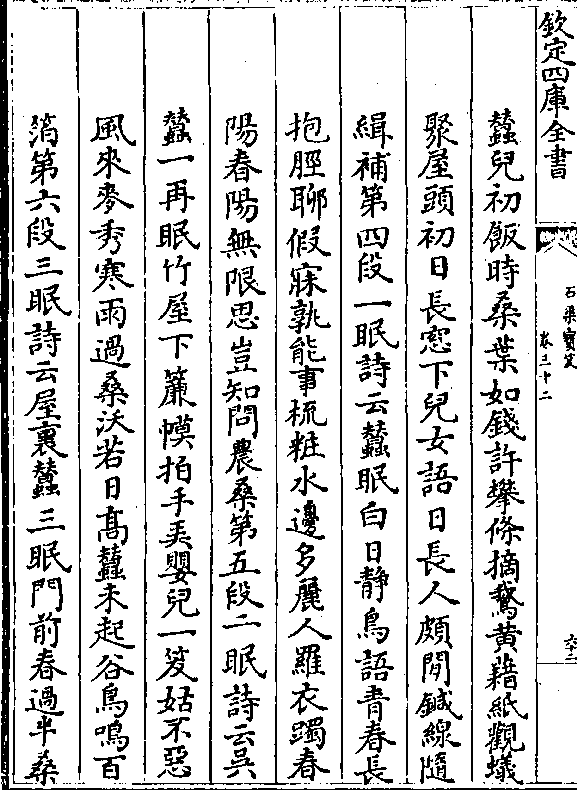 欽定四庫全書
石渠寶笈
卷三十二
六十二
蠶兒初飯時桑葉如錢許攀條摘鵞黄藉紙觀蟻
聚屋頭初日長窓下兒女語日長人頗閒鍼線隨
緝補第四段一眠詩云蠶眠白日静鳥語青春長
抱脛聊假寐孰能事梳粧水邊多麗人羅衣躅春
陽春陽無限思豈知問農桑第五段二眠詩云吳
蠶一再眠竹屋下簾幙拍手美嬰兒一笈姑不惡
風來麥秀寒雨過桑沃若日髙蠶未起谷鳥鳴百
箔第六段三眠詩云屋裏蠶三眠門前春過半桑